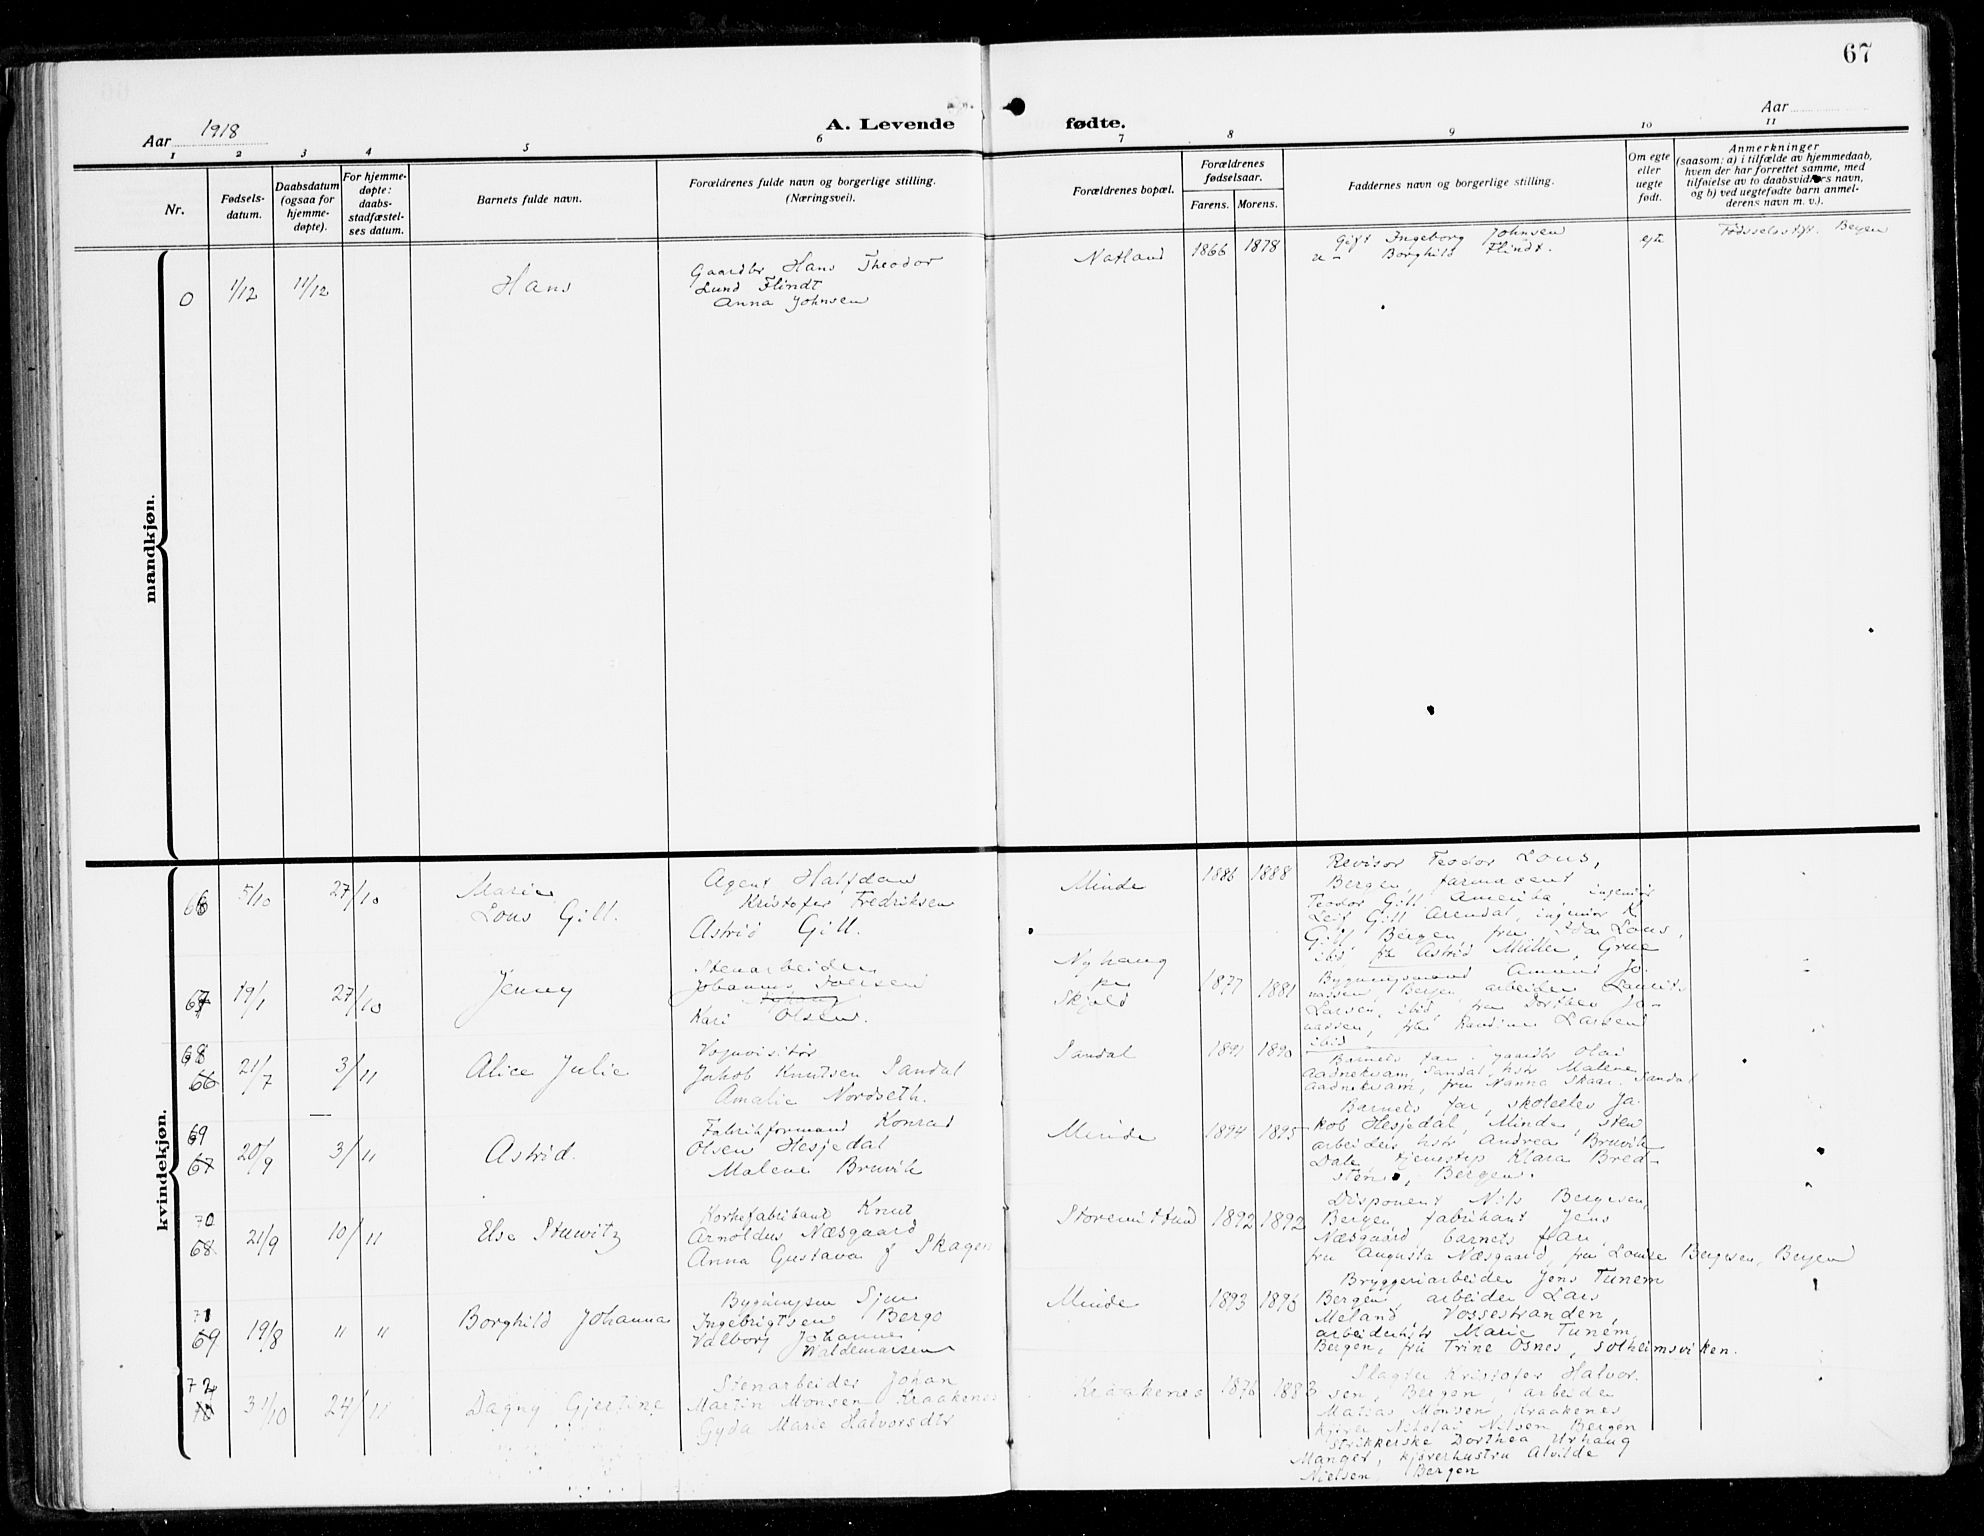 67
Aar 1918
A. Levende fødte.
Aar
1 2 3 4 5 6 7 8 9 10 11
Nr.
Fødsels-
datum.
Daabsdatum
(ogsaa for
hjemme-
døpte).
For hjemme-
døpte:
daabs-
stadfæstel-
ses datum.
Barnets fulde navn.
Forældrenes fulde navn og borgerlige stilling.
(Næringsvei).
Forældrenes bopæl.
Forældrenes
fødselsaar.
Farens. Morens.
Faddernes navn og borgerlige stilling.
Om egte
eller
uegte
født.
Anmerkninger
(saasom: a) i tilfælde av hjemmedaab,
hvem der har forrettet samme, med
tilføielse av to daabsvidners navn,
og b) ved uegtefødte barn anmel-
derens navn m. v.).
mandkjøn.
0 1/12 11/12 Hans
Gaardbr Hans Theodor
Lund Flindt
Anna Johnsen
Natland 1866 1878
Gift Ingeborg Johnsen
u- Borghild Flindt.
egte
Fødselsstift. Bergen
kvindekjøn.
66 5/10 27/10
Marie
Lous Gill.
Agent Halfdan
Kristofer Fredriksen
Astrid Gill.
Minde 1886 1888
Revisor Teodor Lous,
Bergen, farmacent
Teodor Gill, Amerika, ingeniør
Leif Gill Arendal, ingeniør K
Gill Bergen, fru Ida Lous,
ibid fr Astrid Müller, Grue
67 19/1 27/10 Jenny
Stenarbeider
Johannes
Kari Olsen.
Nyhaug
pr
Skjold
1877 1881
Bygningsmand Amund Jo-
nassen, Bergen, arbeider Laurits
Larsen, ibid, fru Dorthea Jo-
nassen, Larsen
ibid
68
66 21/7 3/11 Alice Julie
Vognvisitør
Jakob Knutsen Sandal
Amalie Nordseth.
Sandal 1891 1890
Barnets far, gaardbr Olai
Aadnekvam, Sandal, hstr Malene
Aadnekvam, fru Nanna Skaar, Sandal
69
67 20/9 3/11 Astrid.
Fabrikformand Konrad
Olsen Hesjedal
Malene Bruvik
Minde 1894 1895
Barnets far, skoleelev Ja-
kob Hesjedal, Minde, sten
arbeiders hstr Andrea Bruvik
Dale, tjenestep Klara Bred-
sten, Bergen.
70
68 21/9 10/11 Else Stuwitz
Korkefabrikant Knut
Arnoldus Næsgaard
Anna Gustava f Skagen
Storemittun 1892 1892
Disponent Nils Bergesen,
Bergen, fabrikant Jens
Næsgaard, barnets far,
fru Augusta Næsgaard, fru Louise Bergesen, Bergen
71
69 19/8 " " Borghild Johanna
Bygningssn Sjur
Ingebrigtsen Bergo
Valborg Johanne
Waldemarsen
Minde 1893 1896
Bryggeriarbeider Jens Tunem
Bergen, arbeider Lars
Meland, Vossestranden,
arbeiderhstr Marie Tunem,
Bergen, fru Trine Osnes, Solheimsviken.
72
70 31/10 24/11 Dagny Gjertine
Stenarbeider Johan
Martin Monsen Kraakenes
Gyda Marie Halvorsdtr
Kraakenes 1876 1883
Slagter Kristofer Halvor-
sen, Bergen, arbeider
Matias Monsen, Kraakenes
kjører Nikolai Nilsen Bergen
Strikkerske Dorthea Urhaug
Manger, kjørerhustru Alvilde
Nielsen, Bergen